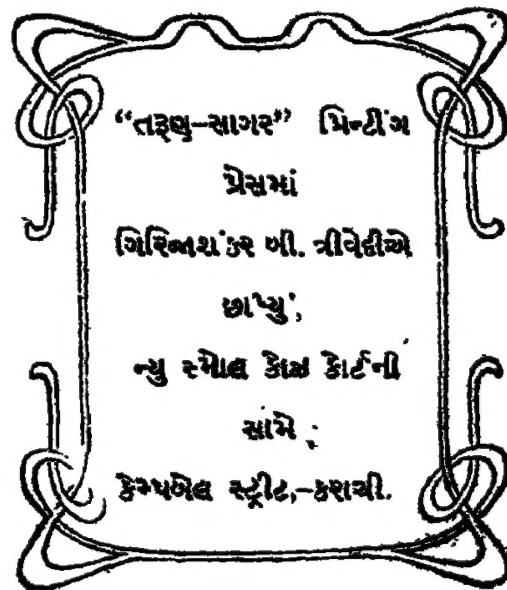 “તરૂણ–સાગર” પ્રિન્ટીંગ
પ્રેસમાં
ગિરિજાશંકર બી. ત્રીવેદીએ
છાપ્યું,
ન્યુ સ્મોલ કોઝ કોર્ટની
સામે ;
કેમ્પબેલ સ્ટ્રીટ,–કરાચી.